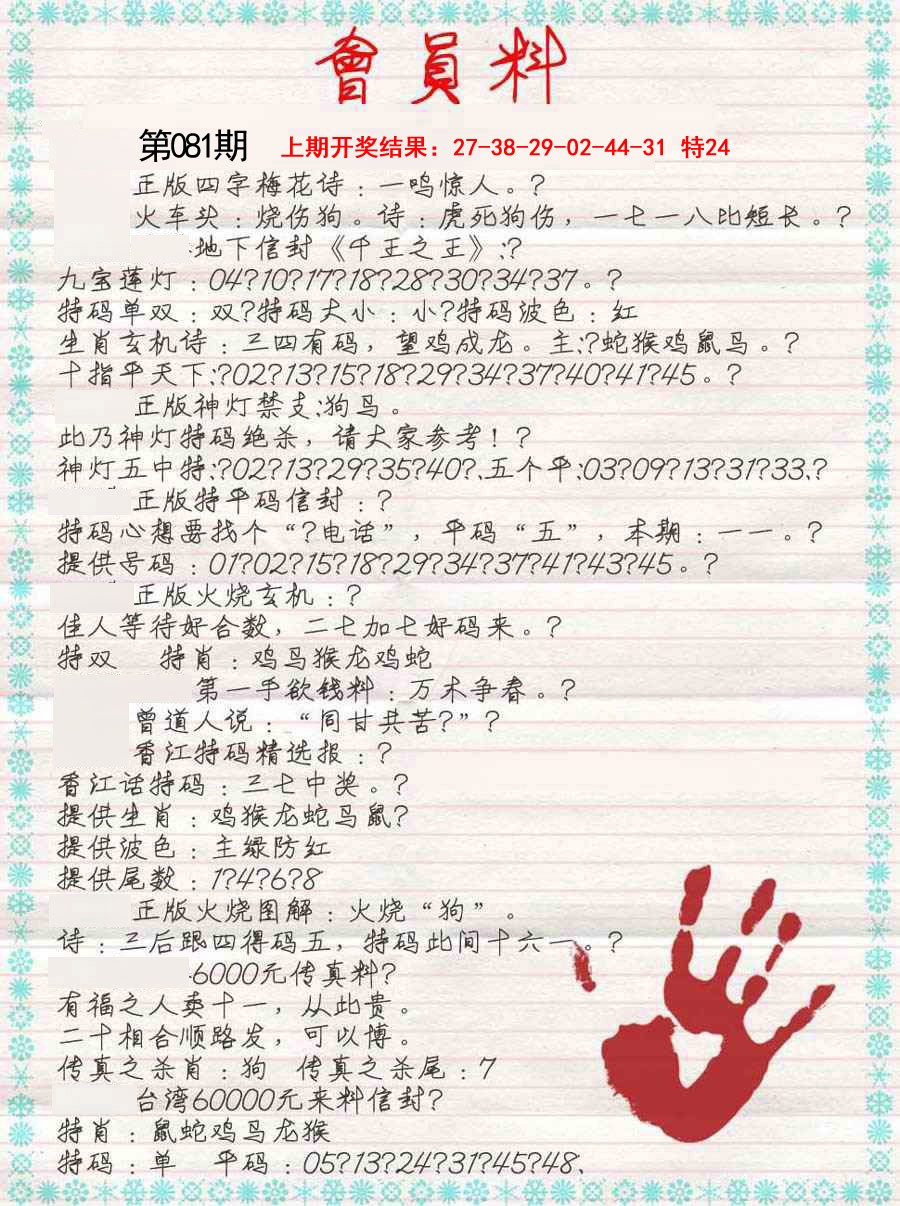 會員料
第081期 上期开奖结果：27-38-29-02-44-31 特24
正版四字梅花诗：一鸣惊人。?
火车头：烧伤狗。诗：虎死狗伤，一七一八比短长。?
地下信封《千王之王》:?
九宝莲灯：04?10?17?18?28?30?34?37。?
特码单双：双?特码大小：小?特码波色：红
生肖玄机诗：三四有码，望鸡成龙。主:?蛇猴鸡鼠马。?
十指平天下:?02?13?15?18?29?34?37?40?41?45。?
正版神灯禁支:狗马。
此乃神灯特码绝杀，请大家参考！?
神灯五中特:?02?13?29?35?40?、五个平:03?09?13?31?33.?
正版特平码信封：?
特码心想要找个“?电话”，平码“五”，本期：一一。?
提供号码：01?02?15?18?29?34?37?41?43?45。?
正版火烧玄机：?
佳人等待好合数，二七加七好码来。?
特双 特肖：鸡马猴龙鸡蛇
第一手欲钱料：万木争春。?
曾道人说：“同甘共苦?”?
香江特码精选报：?
香江话特码：三七中奖。?
提供生肖：鸡猴龙蛇马鼠?
提供波色：主绿防红
提供尾数：1?4?6?8
正版火烧图解：火烧“狗”。
诗：三后跟四得码五，特码此间十六一。?
6000元传真料?
有福之人卖十一，从此贵。
二十相合顺路发，可以博。
传真之杀肖：狗 传真之杀尾：7
台湾60000元来料信封?
特肖：鼠蛇鸡马龙猴
特码：单 平码：05?13?24?31?45?48、